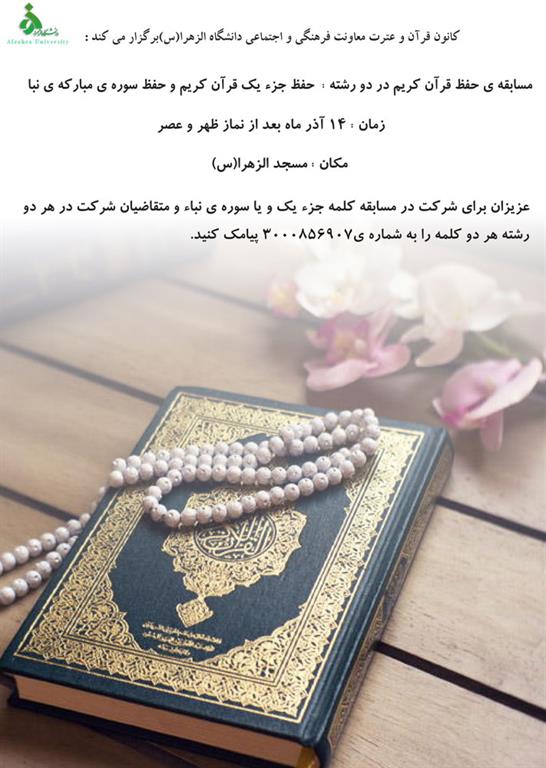 دانشگاه الزهرا
Alzahra University
کانون قرآن و عترت معاونت فرهنگی و اجتماعی دانشگاه الزهرا(س)برگزار می کند :
مسابقه ی حفظ قرآن کریم در دو رشته : حفظ جزء یک قرآن کریم و حفظ سوره ی مبارکه ی نبا
زمان : ۱۴ آذر ماه بعد از نماز ظهر و عصر
مکان : مسجد الزهرا(س)
عزیزان برای شرکت در مسابقه کلمه جزء یک و یا سوره ی نباء و متقاضیان شرکت در هر دو
رشته هر دو کلمه را به شماره ی۳۰۰۰۸۵۶۹۰۷ پیامک کنید.
القرآن الكريم